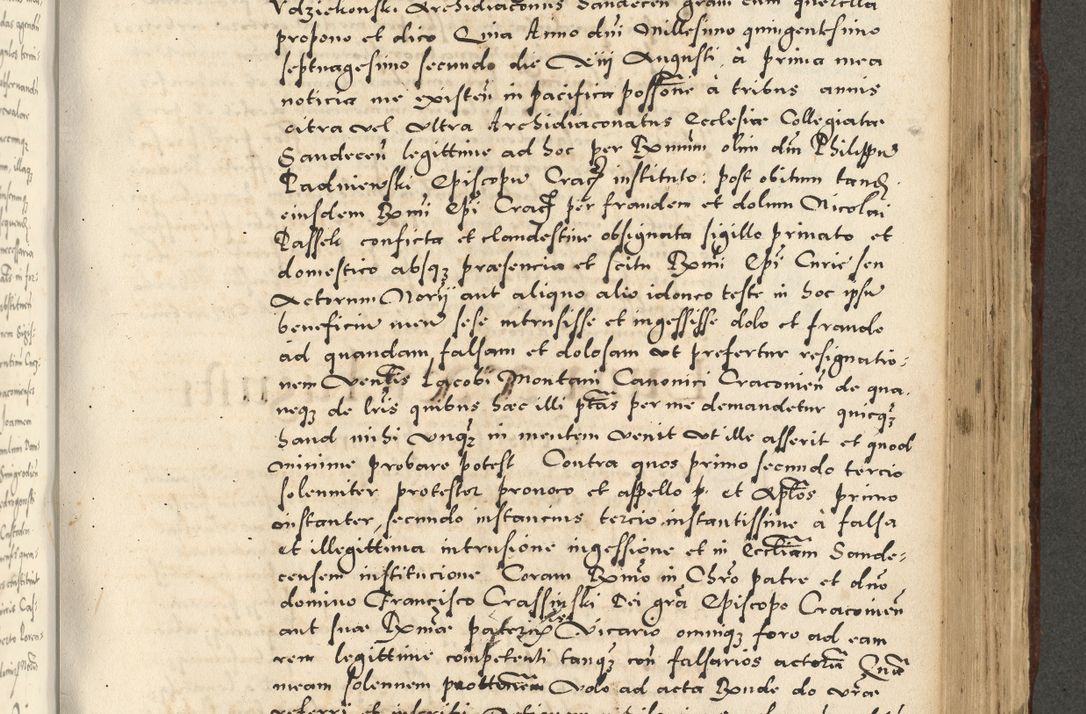 Vdziekonski Archidiaconus Sandecen gram cum querella
propono et dico Quia Anno dni Millesimo quingentesimo
septuagesimo secundo die Xiij Augusti, à prima mea
noticia me existen in pacifica possone à tribus annis
citra vel vltra Archidiaconatus Ecclesiæ Collegiatæ
Sandecen legittime ad hoc per Rmum olim dnm Philippu
Padniewski Episcopu Crac instituto: post obitum tand
eiusdem Rmi Epi Crac per fraudem et dolum Nicolai
Passek conficta et clandestine obsignata sigillo priuato et
domestico absq præsencia et scitu Rmi Epi Curie seu
Actorum Norij aut aliquo alio idoneo teste in hoc ipsu
beneficiu meu sese intrusisse et ingessisse dolo et fraude
ad quandam falsam et dolosam vt prefertur resignatio-
nem Ventis Jacobi Montani Canonici Cracouien de qua
neq de lris quibus hæc illi ptas per me demandetur quicq
haud mihi vnq in mentem venit vt ille asserit et quod
minime probare potest Contra quos primo secundo tercio
solenniter protestor prouoco et appello p. et Aptos primo
instanter, secundo instancius tercio instantissime à falsa
et illegittima intrusione ingessione et in Eccliam Sande-
censem institucione Coram Rmo in Chro patre et dno
domino Francisco Crassinski Dei gra Episcopo Cracouien
aut suæ Rmæ Vicario omniq foro ad eam
rem legittime competenti tanq con falsarios
meam solennem Volo ad acta do vræ
referri et